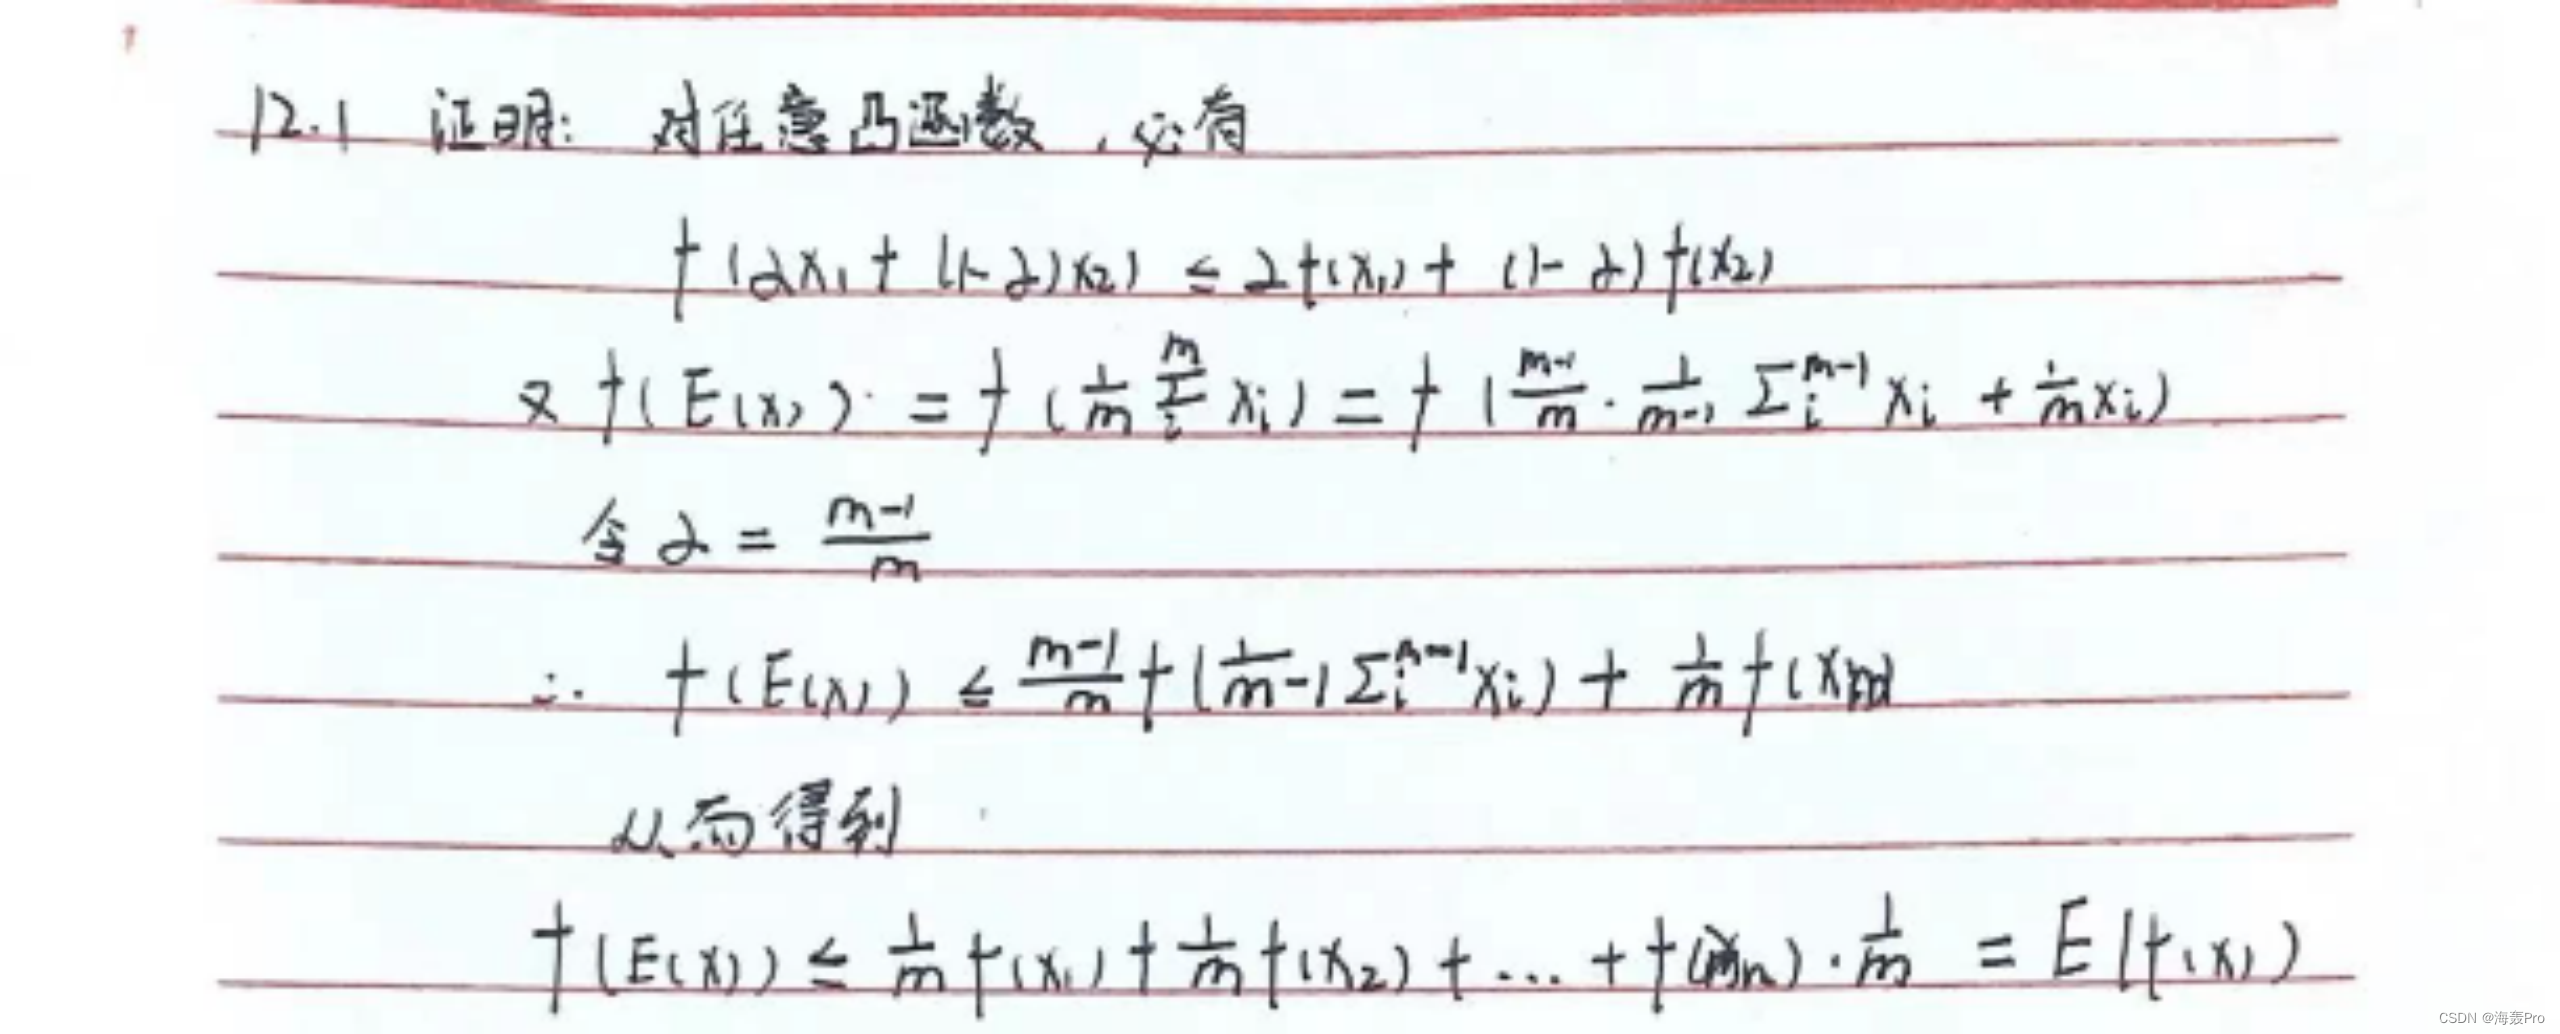 12.1 证明: 对任意凸函数, 必有
f(λx₁ + (1-λ)x₂) ≤ λf(x₁) + (1-λ)f(x₂)
又 f(E(x)) = f(1/m Σᵢᵐ xᵢ) = f(m-1/m · 1/m-1 Σᵢᵐ⁻¹ xᵢ + 1/m xᵢ)
令 λ = m-1/m
∴ f(E(x)) ≤ m-1/m f(1/m-1 Σᵢᵐ⁻¹ xᵢ) + 1/m f(xₘ)
从而得到
f(E(x)) ≤ 1/m f(x₁) + 1/m f(x₂) + ... + f(xₘ) · 1/m = E(f(x))
CSDN @海轰Pro